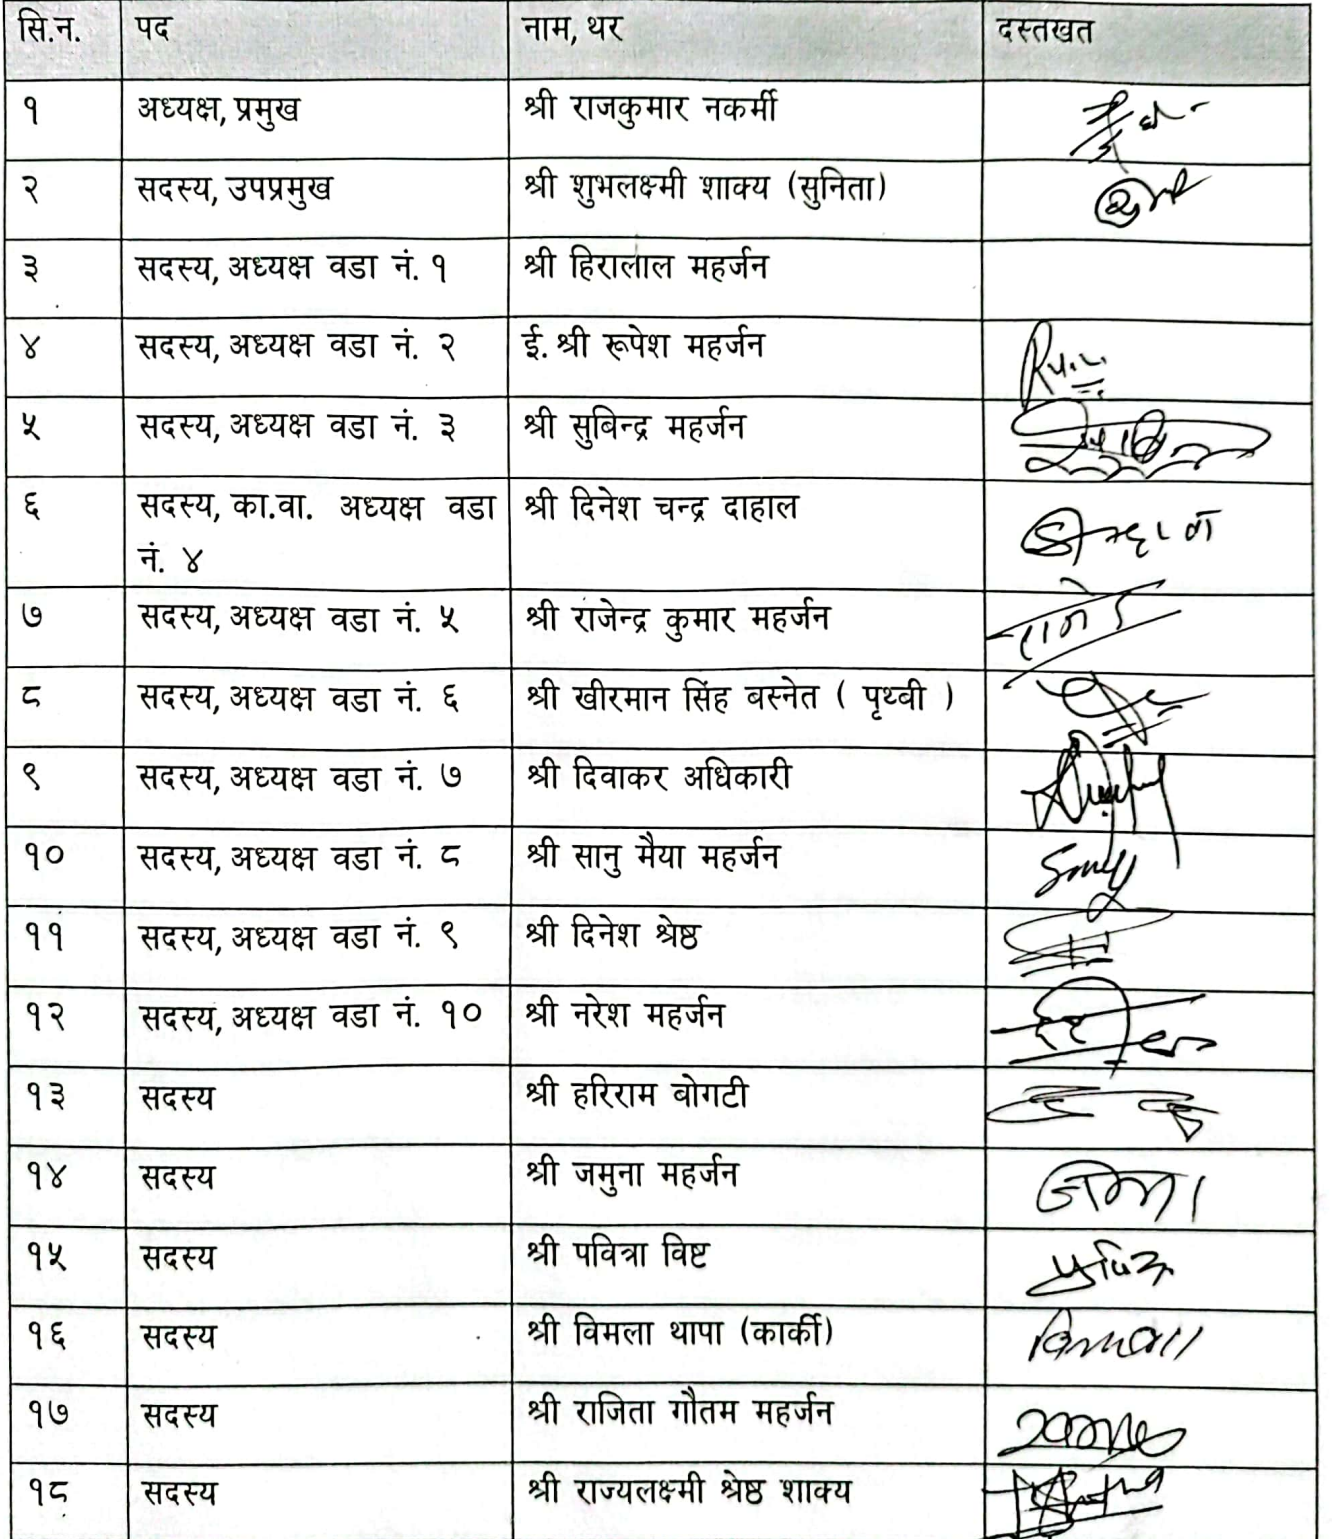 सि.न. पद नाम, थर दस्तखत
१ अध्यक्ष, प्रमुख श्री राजकुमार नकर्मी
२ सदस्य, उपप्रमुख श्री शुभलक्ष्मी शाक्य (सुनिता)
३ सदस्य, अध्यक्ष वडा नं. १ श्री हिरालाल महर्जन
४ सदस्य, अध्यक्ष वडा नं. २ ई. श्री रूपेश महर्जन
५ सदस्य, अध्यक्ष वडा नं. ३ श्री सुबिन्द्र महर्जन
६ सदस्य, का.वा. अध्यक्ष वडा श्री दिनेश चन्द्र दाहाल
नं. ४
७ सदस्य, अध्यक्ष वडा नं. ५ श्री राजेन्द्र कुमार महर्जन
८ सदस्य, अध्यक्ष वडा नं. ६ श्री खीरमान सिंह बस्नेत ( पृथ्बी )
९ सदस्य, अध्यक्ष वडा नं. ७ श्री दिवाकर अधिकारी
१० सदस्य, अध्यक्ष वडा नं. ८ श्री सानु मैया महर्जन
११ सदस्य, अध्यक्ष वडा नं. ९ श्री दिनेश श्रेष्ठ
१२ सदस्य, अध्यक्ष वडा नं. १० श्री नरेश महर्जन
१३ सदस्य श्री हरिराम बोगटी
१४ सदस्य श्री जमुना महर्जन
१५ सदस्य श्री पवित्रा विष्ट
१६ सदस्य श्री विमला थापा (कार्की)
१७ सदस्य श्री राजिता गौतम महर्जन
१८ सदस्य श्री राज्यलक्ष्मी श्रेष्ठ शाक्य